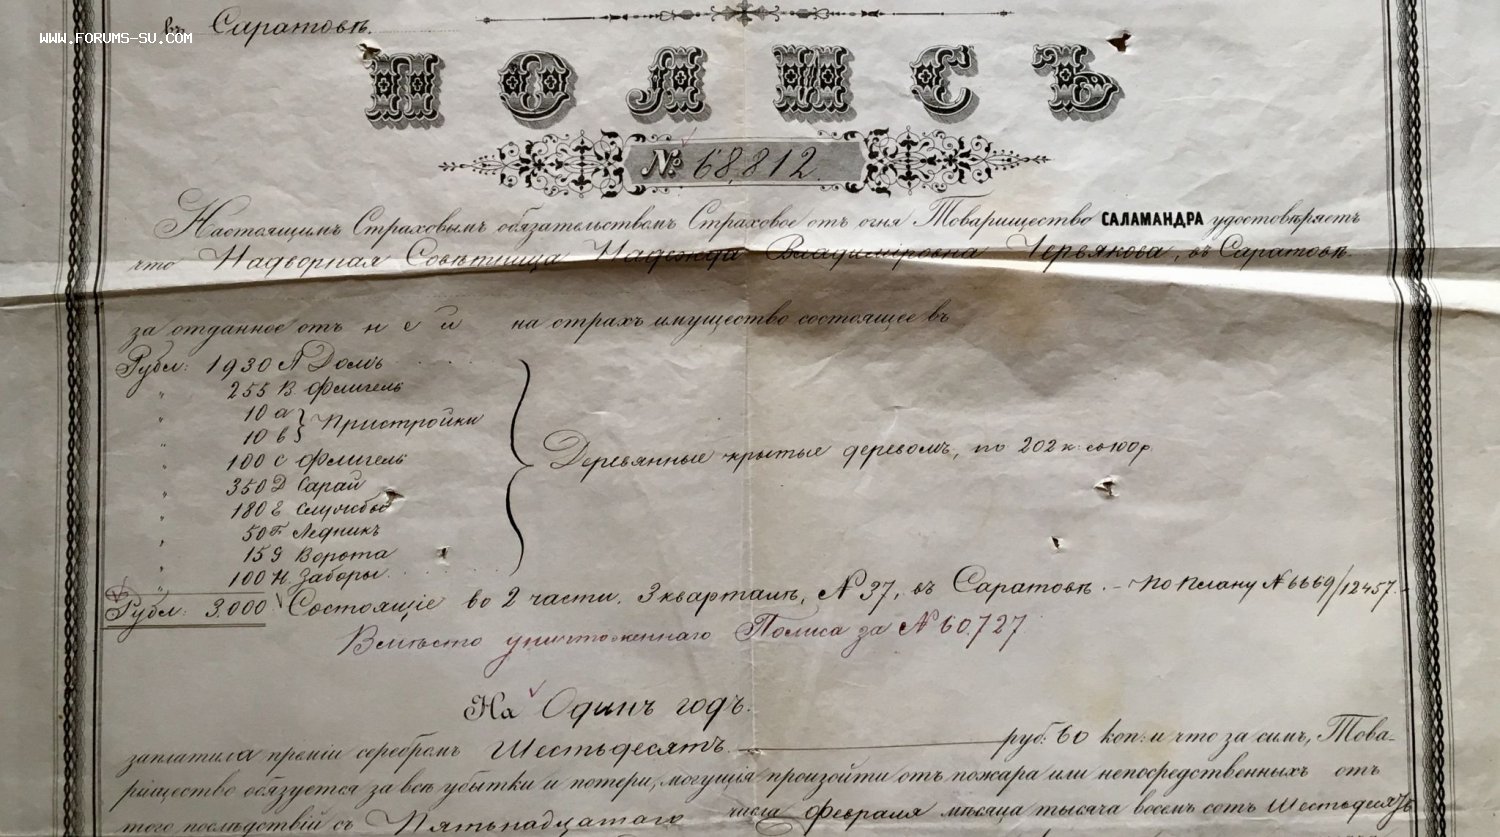 въ Саратовѣ.
WWW.FORUMS-SU.COM
ПОЛИСЪ
№ 68,812.
Настоящимъ Страховымъ обязательствомъ Страховое отъ огня Товарищество САЛАМАНДРА удостовѣряетъ
что Надворная Совѣтница Надежда Владиміровна Червякова, въ Саратовѣ
за отданное отъ ней на страхъ имущество состоящее въ
Рубл: 1930 А Домъ
" 255 В. Флигель
" 10 а } Пристройки
" 10 в }
" 100 С Флигель
" 350 D Сарай
" 180 E Службы
" 50 F Ледникъ
" 15 G Ворота
" 100 H. Заборы.
Деревянные крытые деревомъ, по 202 к: со 100 р.
Рубл: 3,000 Состоящіе во 2 части, 3 кварталѣ, № 37, въ Саратовѣ. - По плану № 6669/12457.
Вмѣсто уничтоженнаго Полиса за № 60,727
На Одинъ годъ.
заплатила преміи серебромъ Шестьдесятъ. руб: 60 коп: и что за симъ, Това-
рищество обязуется за всѣ убытки и потери, могущія произойти отъ пожара или непосредственныхъ отъ
того послѣдствій съ Пятьнадцатаго числа Февраля мѣсяца тысяча восемь сотъ Шестьдесятъ